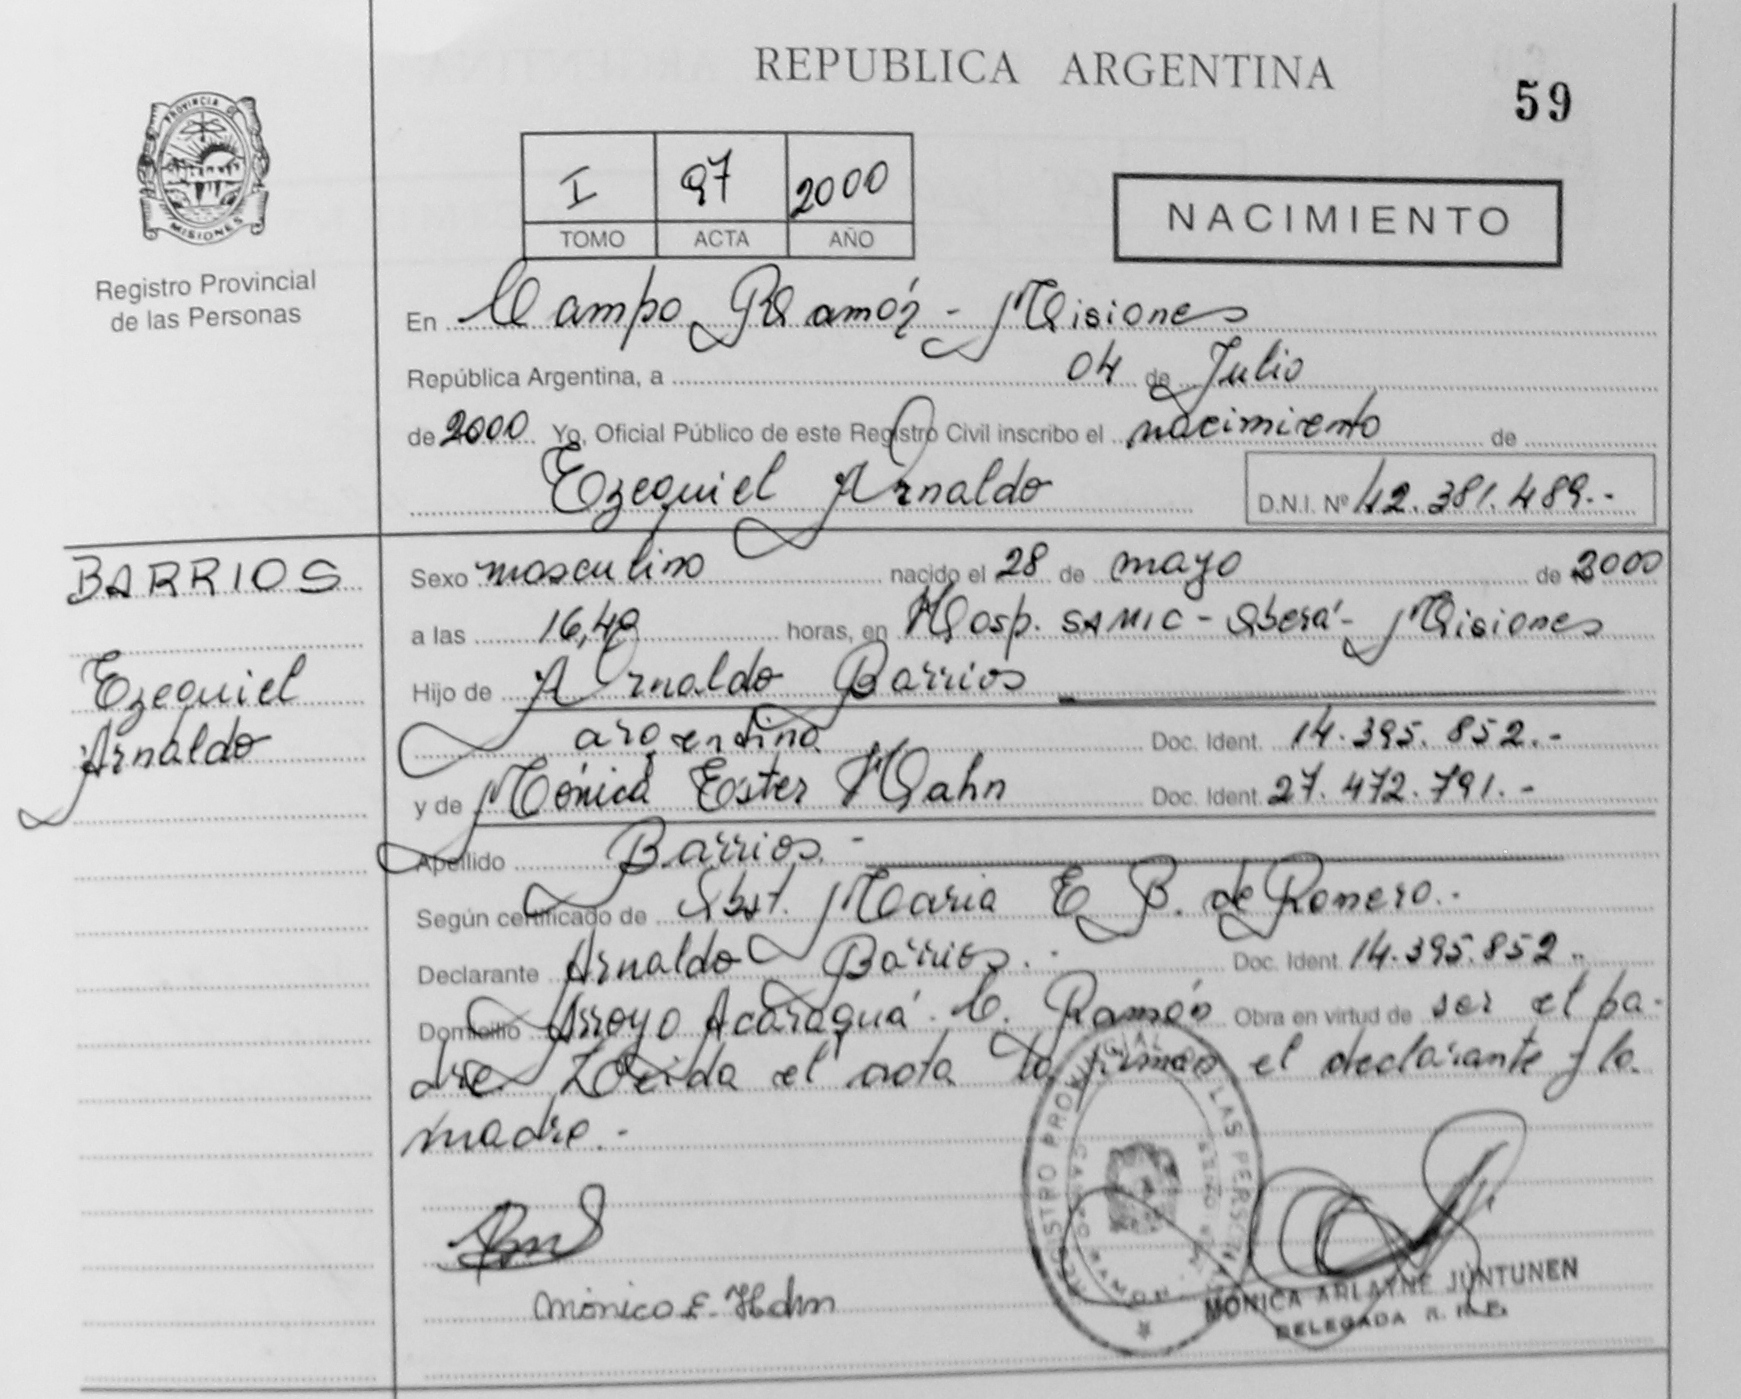 REPUBLICA ARGENTINA
59
PROVINCIA D
MISIONES
Registro Provincial
de las Personas
I 97 2000
TOMO ACTA AÑO
NACIMIENTO
En Campo Ramón - Misiones
República Argentina, a 04 de Julio
de 2000 Yo, Oficial Público de este Registro Civil inscribo el nacimiento de
Ezequiel Arnaldo D.N.I. Nº 42.381.489.-
BARRIOS
Ezequiel
Arnaldo
Sexo masculino nacido el 28 de mayo de 2000
a las 16,40 horas, en Hosp. SAMIC - Oberá - Misiones
Hijo de Arnaldo Barrios
argentino Doc. Ident. 14.395.852.-
y de Mónica Ester Hahn Doc. Ident. 27.472.791.-
Apellido Barrios.-
Según certificado de Obst. Maria E B. de Romero.-
Declarante Arnaldo Barrios.- Doc. Ident. 14.395.852.-
Domicilio Arroyo Acaraguá. C. Ramón Obra en virtud de ser el pa-
dre. Leida el acta la firman el declarante y la
madre.-
Mónica E. Hahn
REGISTRO PROVINCIAL DE LAS PERSONAS
MONICA ARLAYNE JUNTUNEN
DELEGADA R. P. P.